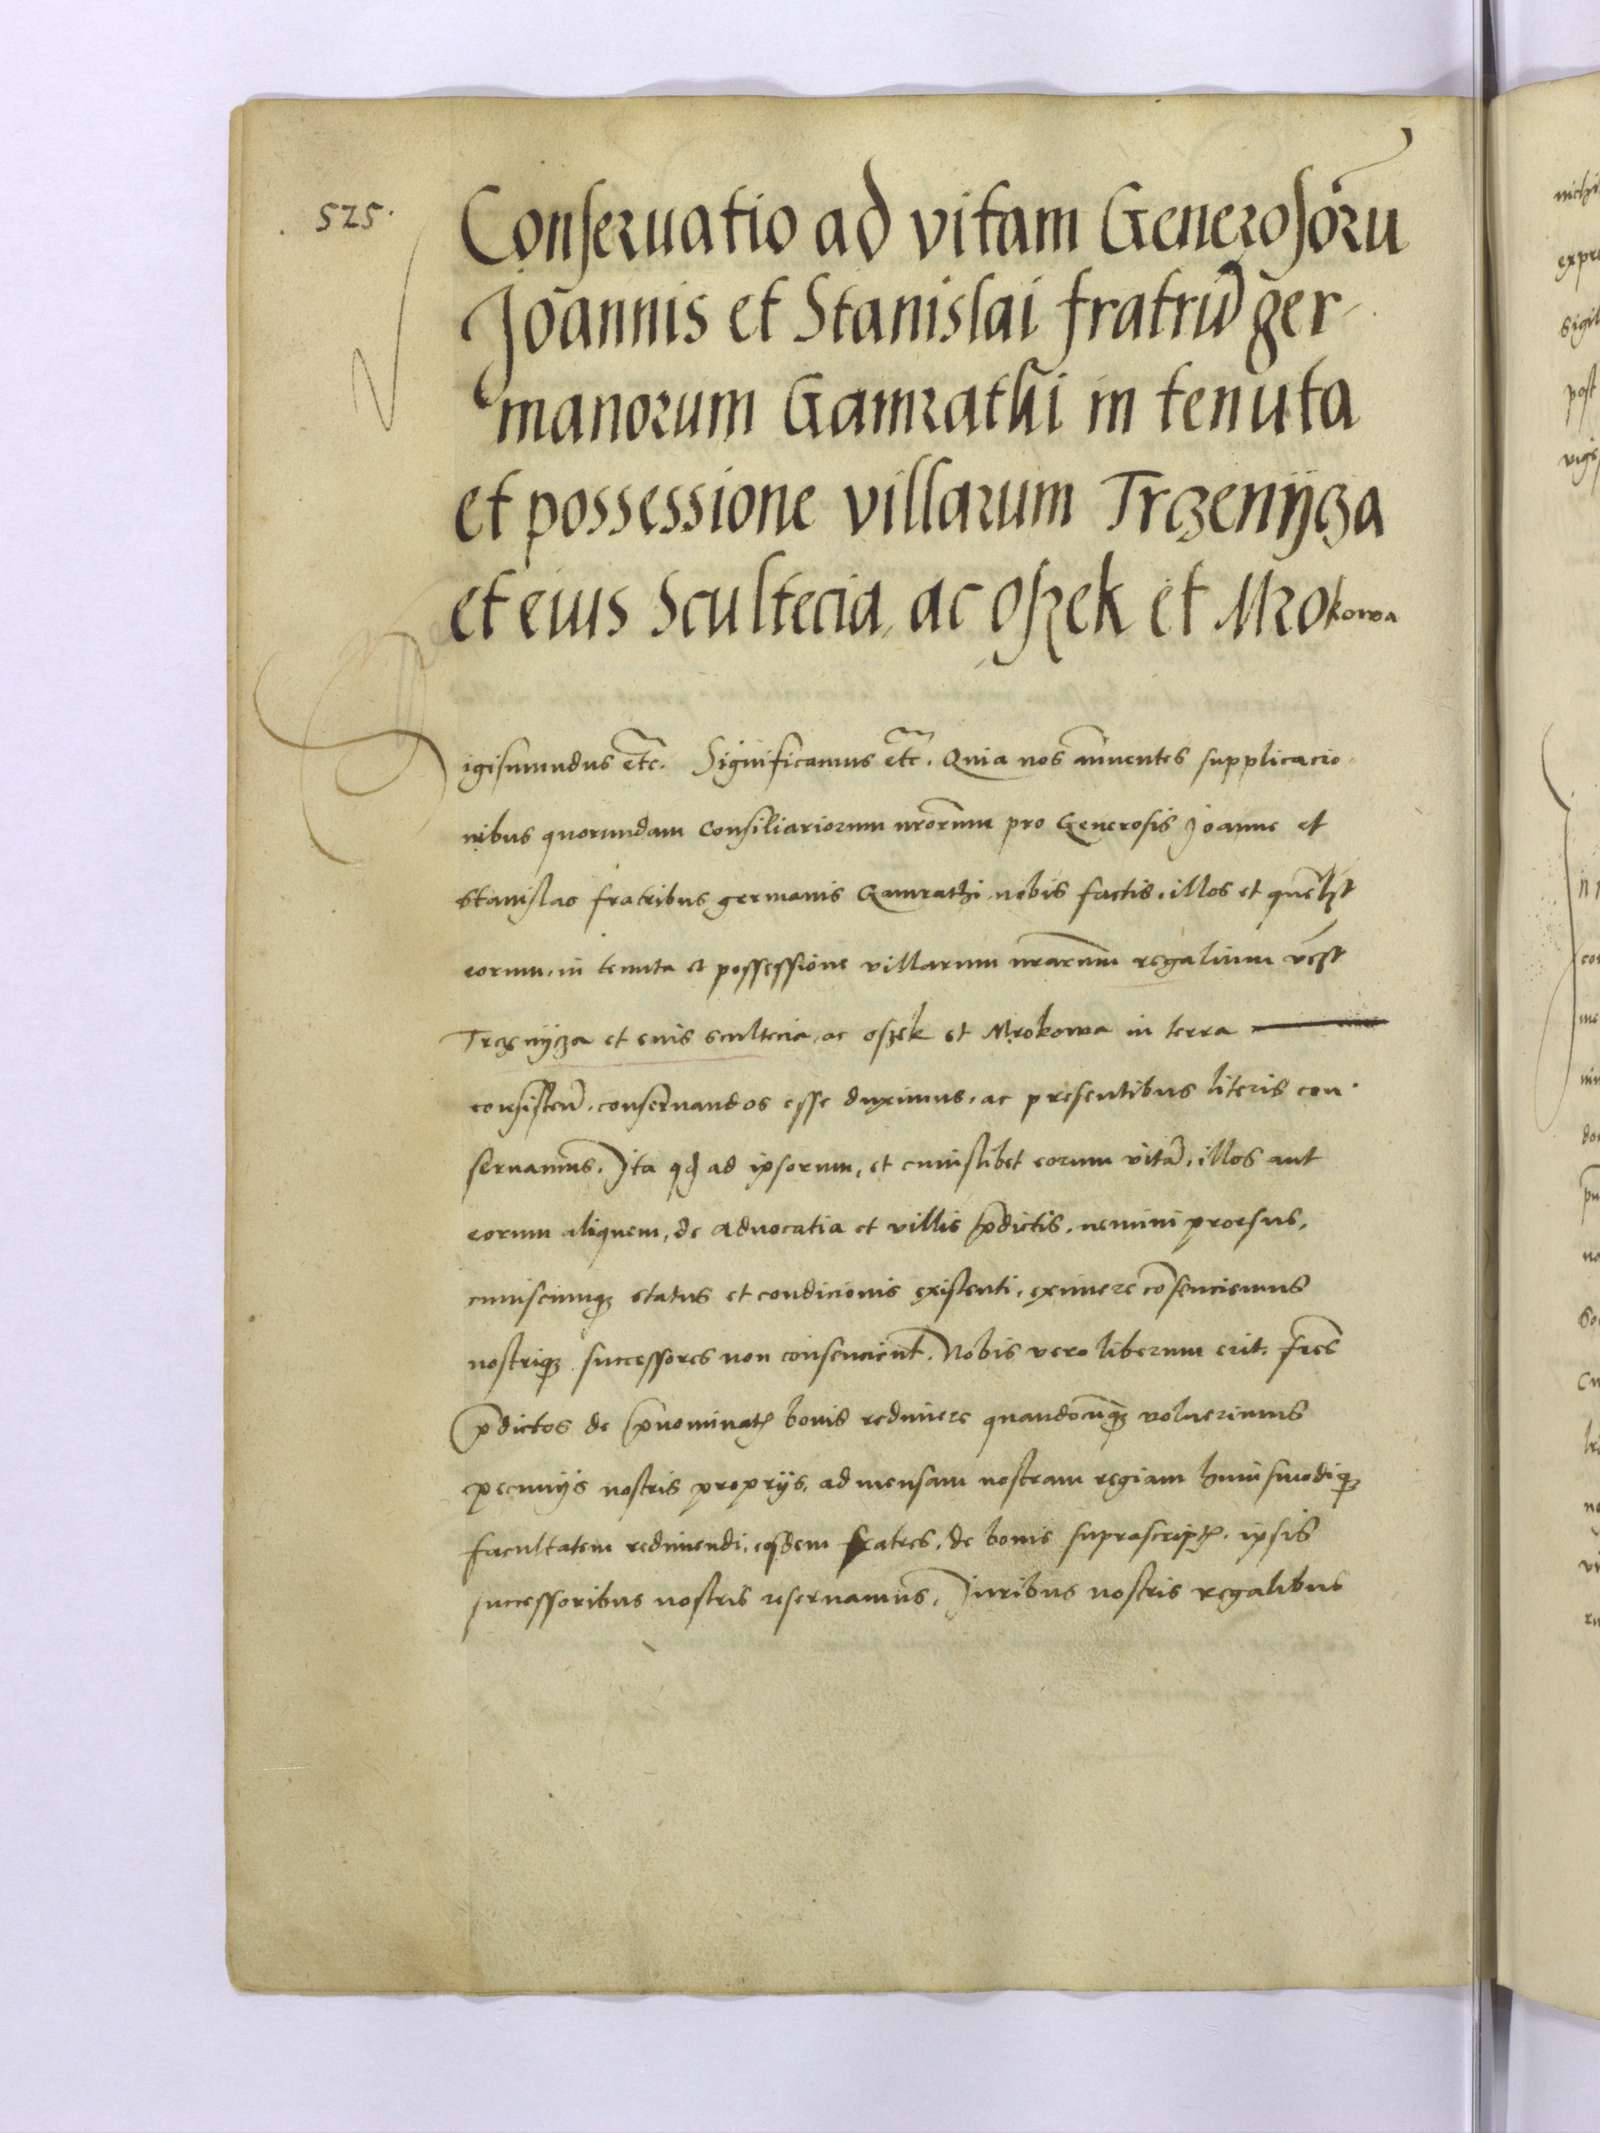 525.
Conseruatio ad vitam Generosorū
Joannis et Stanislai fratrū ger-
manorum Gamrathi in tenuta
et possessione villarum Trczenÿcza
et eius Scultecia, ac Oszek et Mrokowa
Sigismundus etc. Significamus etc. Quia nos annuentes supplicacio-
nibus quorundam Consiliariorum nrorum pro Generosis Joanne et
Stanislao fratribus germanis Gamrathi nobis factis, illos et quēlzt
eorum, in tenuta et possessione villarum nrarum regalium
Trczenÿcza et euis scultecia, ac oszek et Mrokowa in terra
consisten̄. conseruandos esse duximus, ac presentibus literis con-
seruamus. Ita qd ad ipsorum, et cuiuslibet eorum vitā, illos aut
eorum aliquem, de aduocatia et villis p̄dictis, nemini prorsus,
cuiuscumqz status et condicionis existenti, eximere cōsenciemus
nostriqz successores non consencient. Nobis vero liberum erit. fr̄es
p̄dictos de p̄nominatis bonis redimere quandocūqz voluerimus
pecunijs nostris proprijs, ad mensam nostram regiam huiusmodiqz
facultatem redimendi, eosdem fratres, de bonis suprascriptis, ipsis
successoribus nostris reseruamus, Juribus nostris regalibus